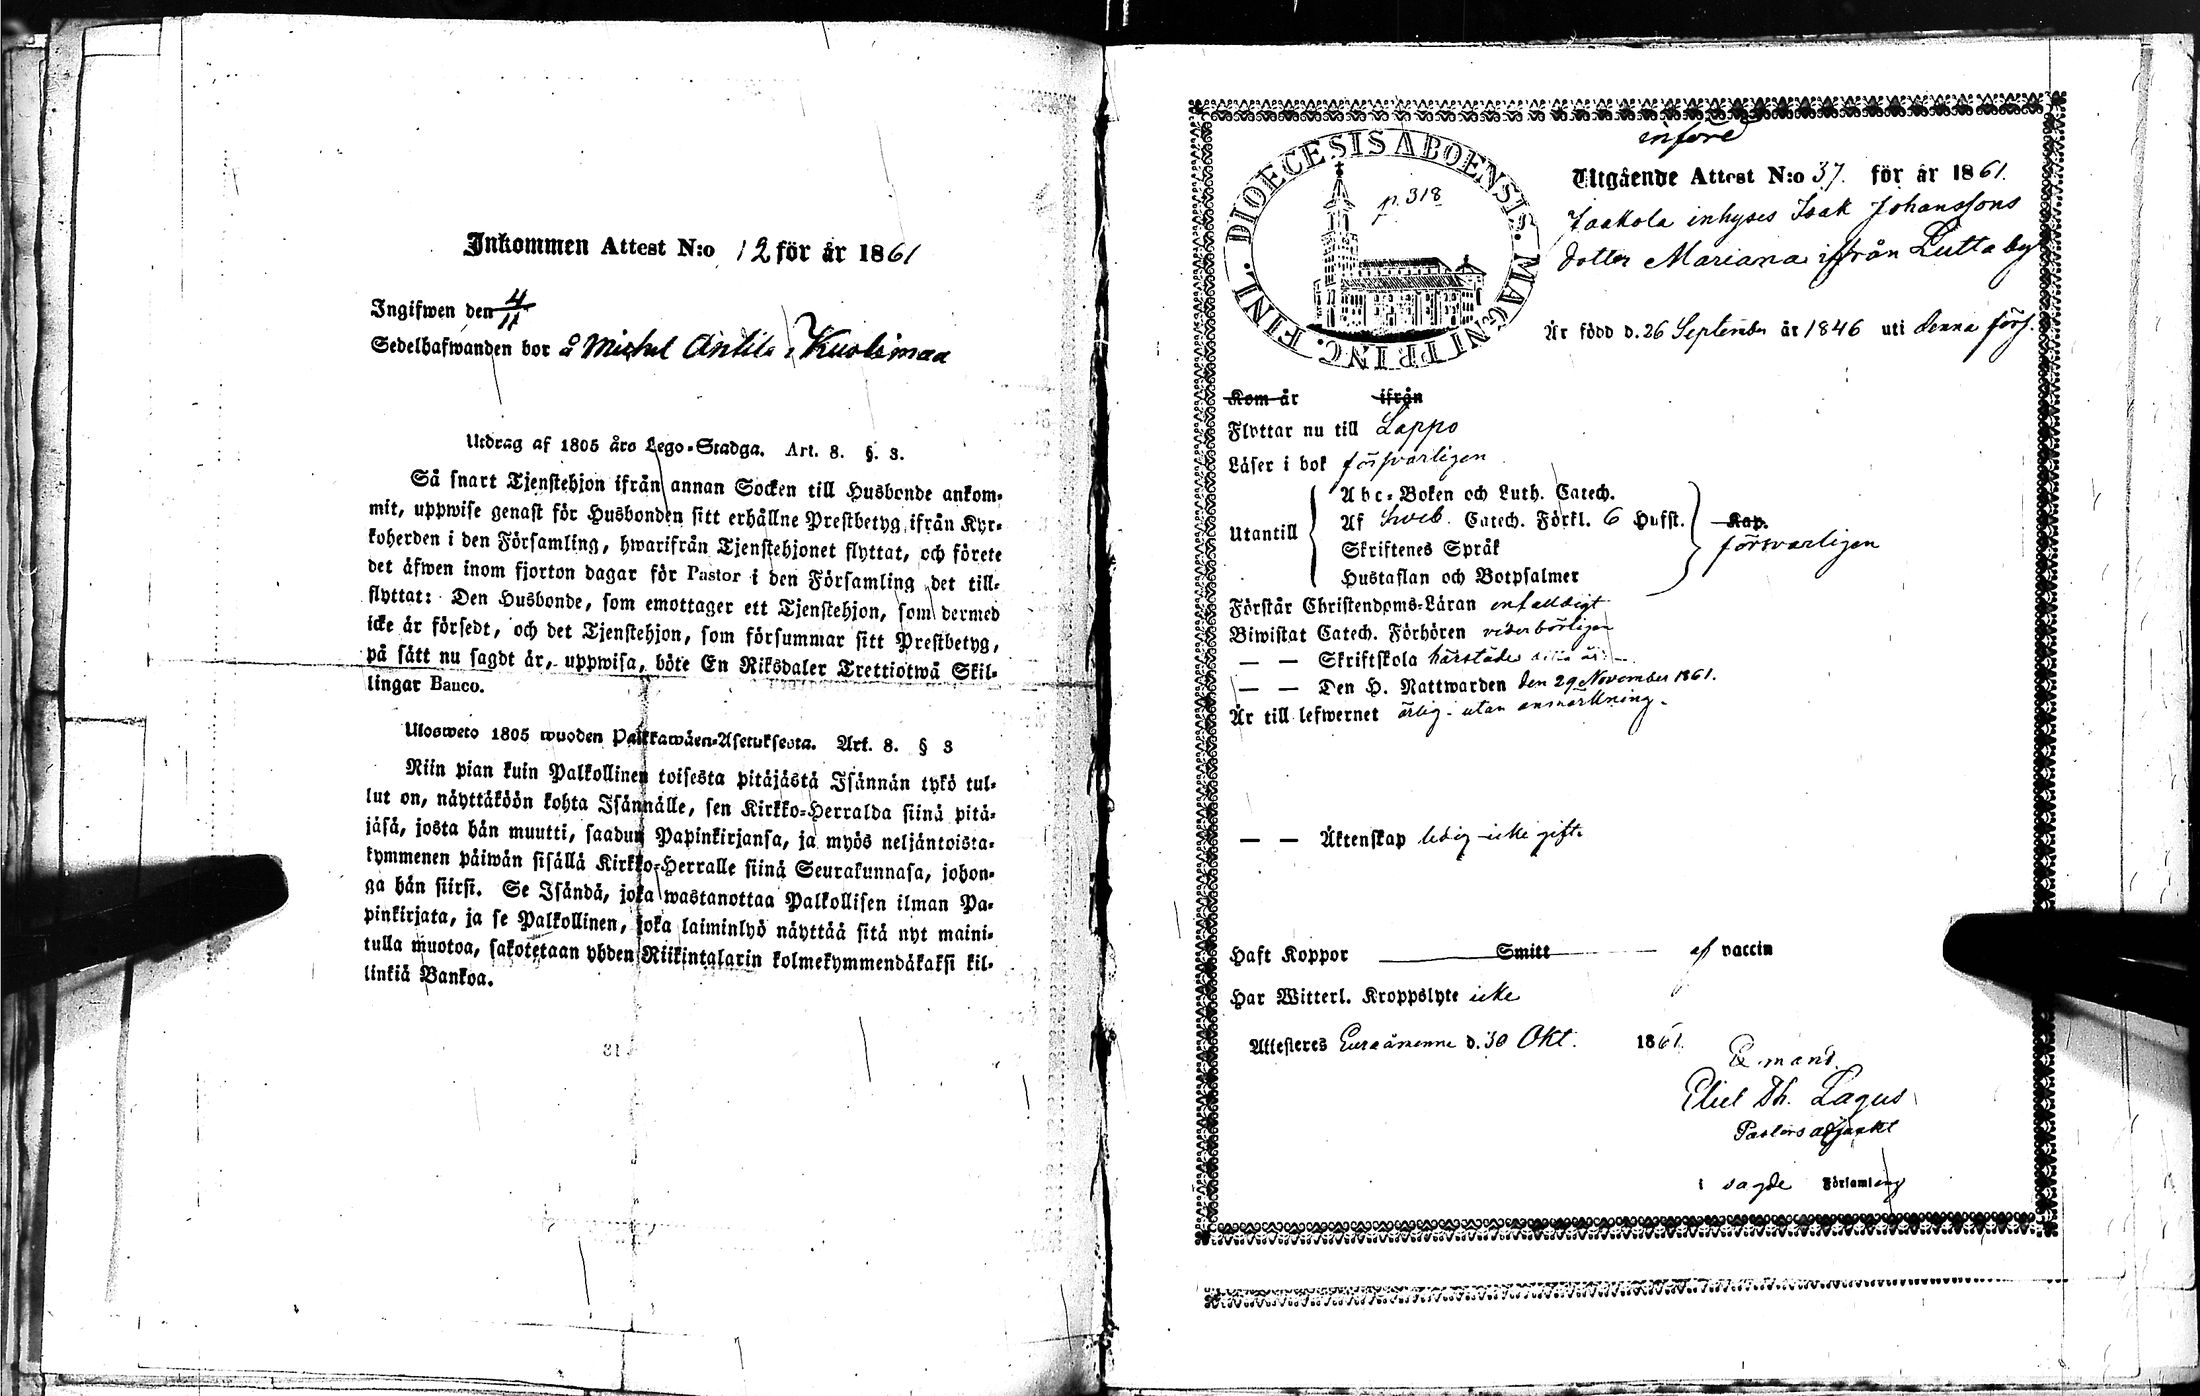 Inkommen Attest N:o 12 för år 1861
Ingifwen den 4/11
Sedelhafwanden bor å Michel Antila i Kuolimaa
Utdrag af 1805 års Lego-Stadga. Art. 8. §. 3.
Så snart Tjenstehjon ifrån annan Socken till Husbonde ankom-
mit, uppwise genast för Husbonden sitt erhållne Prestbetyg ifrån Kyr-
koherden i den Församling, hwarifrån Tjenstehjonet flyttat, och förete
det äfwen inom fjorton dagar för Pastor i den Församling det till-
flyttat: Den Husbonde, som emottager ett Tjenstehjon, som dermed
icke är försedt, och det Tjenstehjon, som försummar sitt Prestbetyg,
på sätt nu sagdt är, uppwisa, böte En Riksdaler Trettiotwå Skil-
lingar Banco.
Ulosweto 1805 wuoden Palkkawäen-Asetuksesta. Art. 8. § 3
Niin pian kuin Palkollinen toisesta pitäjästä Isännän tykö tul-
lut on, näyttäköön kohta Isännälle, sen Kirkko-Herralda siinä pitä-
jäsä, josta hän muutti, saadun Papinkirjansa, ja myös neljäntoista-
kymmenen päiwän sisällä Kirkko-Herralle siinä Seurakunnasa, johon-
ga hän siirsi. Se Isändä, joka wastanottaa Palkollisen ilman Pa-
pinkirjata, ja se Palkollinen, joka laiminlyö näyttää sitä nyt maini-
tulla muotoa, sakotetaan yhden Riikintalarin kolmekymmendäkaksi kil-
linkiä Bankoa.
införd
DIOECESIS ABOENSIS. MAGNI PRINC. FINL.
p. 318
Utgående Attest N:o 37. för år 1861.
Jaakola inhyses Isak Johanssons
dotter Mariana ifrån Lutta by
Är född d. 26 September år 1846 uti denna förs.
Kom år ifrån
Flyttar nu till Lappo
Läser i bok försvarligen
Utantill
Abc-Boken och Luth. Catech.
Af Sveb. Catech. Förkl. 6 Hufst.
Skriftenes Språk
Hustaflan och Botpsalmer
Kap.
försvarligen
Förstår Christendoms-Läran enfaldigt
Biwistat Catech. Förhören vederbörligen
— — Skriftskola härstädes detta år.
— — Den H. Nattwarden den 29 November 1861.
Är till lefwernet ärlig - utan anmärkning.
— — Äktenskap ledig - icke gift.
Haft Koppor Smitt af vaccin
Har Witterl. Kroppslyte icke
Attesteres Euraåminne d. 30 Okt. 1861.
Eliel Th. Lagus
Pastors adjunkt
i sagde Församling